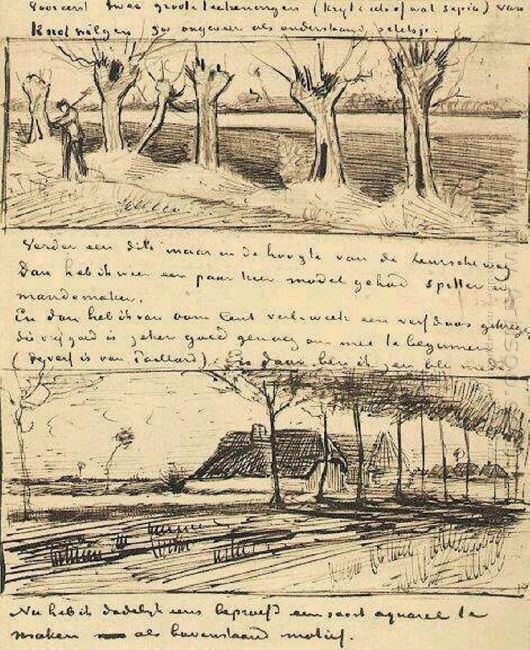 Vooreerst twee groote teekeningen (krijt en ofwat sepia) van
Knotwilgen zoo ongeveer als onderstaand peletje.
Verder een dito maar in de hoogte van de Leurscheweg
Dan heb ik weer een paar keer model gehad spitter en
mandemaker.
En dan heb ik van oom Cent verl. week een verfdoos gekregen
die vrij goed is zeker goed genoeg om mee te beginnen
(de verf is van Paillard). En daar ben ik zeer blij mede
Nu heb ik dadelijk eens beproefd een soort aquarel te
maken als bovenstaand motief.